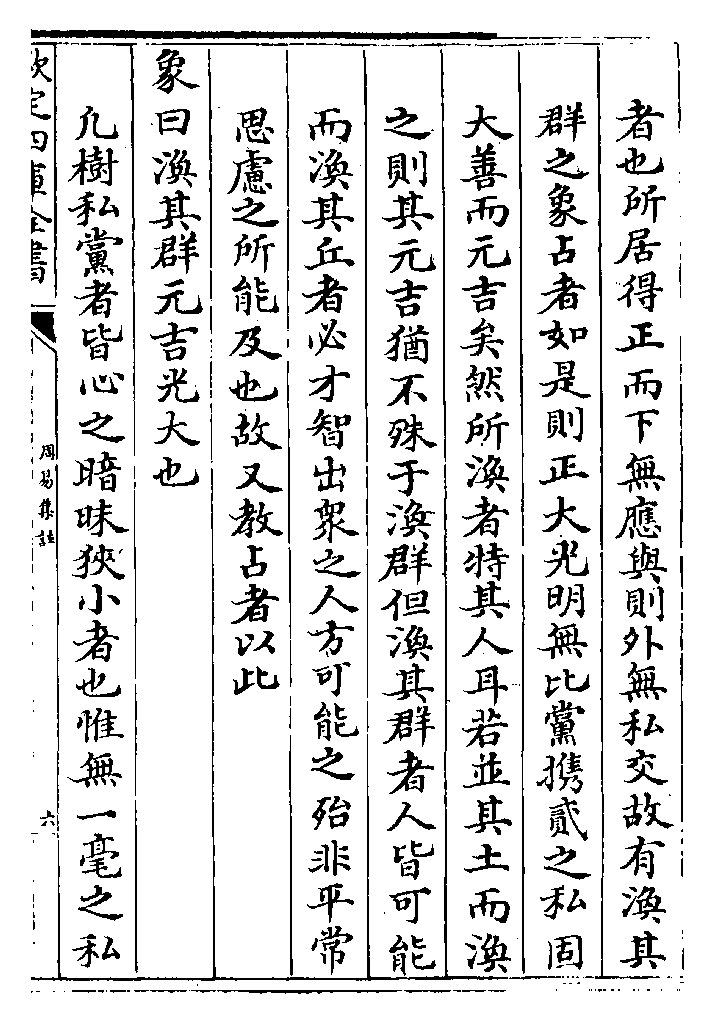 者也所居得正而下無應與則外無私交故有渙其
群之象占者如是則正大光明無比黨攜貳之私固
大善而元吉矣然所渙者特其人耳若並其土而渙
之則其元吉猶不殊于渙群但渙其群者人皆可能
而渙其丘者必才智出衆之人方可能之殆非平常
思慮之所能及也故又教占者以此
象曰渙其群元吉光大也
凡樹私黨者皆心之暗昧狹小者也惟無一毫之私
欽定四庫全書
周易集註
六